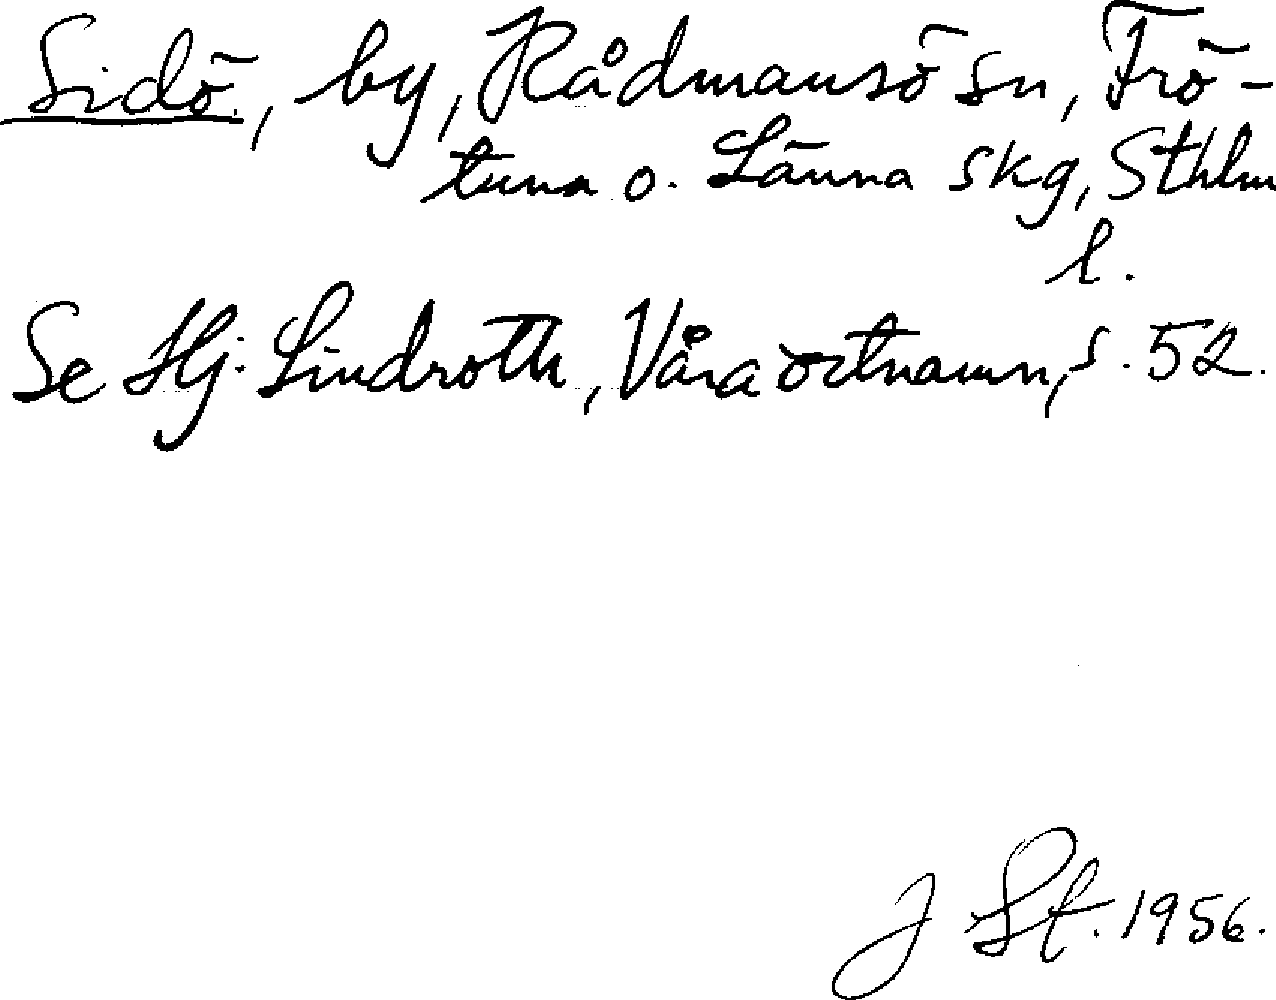 Sidö, by, Rådmansö sn, Frö-
tuna o. Länna skg, Sthlm
l.
Se Hj. Lindroth, Våra ortnamn, s. 52.
J St. 1956.